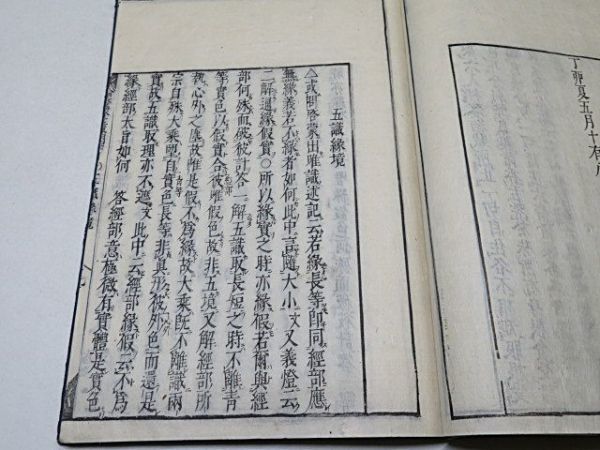 丁酉夏五月十有八
五識緣境
△或問啓蒙出唯識述記云若緣長等即同經部應
無緣義若不緣者如何此中言隨大小文又義燈云
二解通緣假實○所以緣實之時亦緣假若爾與經
部何殊而破彼計答一解五識取長短之時不離青
等實色以假實合彼唯假色故非五境又解經部所
執心外之塵故唯是假不爲緣故大乘既不離識兩
宗自殊大乘既自實色長等非眞形彼外色而還是
實故五識取理亦不遮文此中云經部緣假云不爲
緣經部本旨如何 答經部意極微有實體是實色